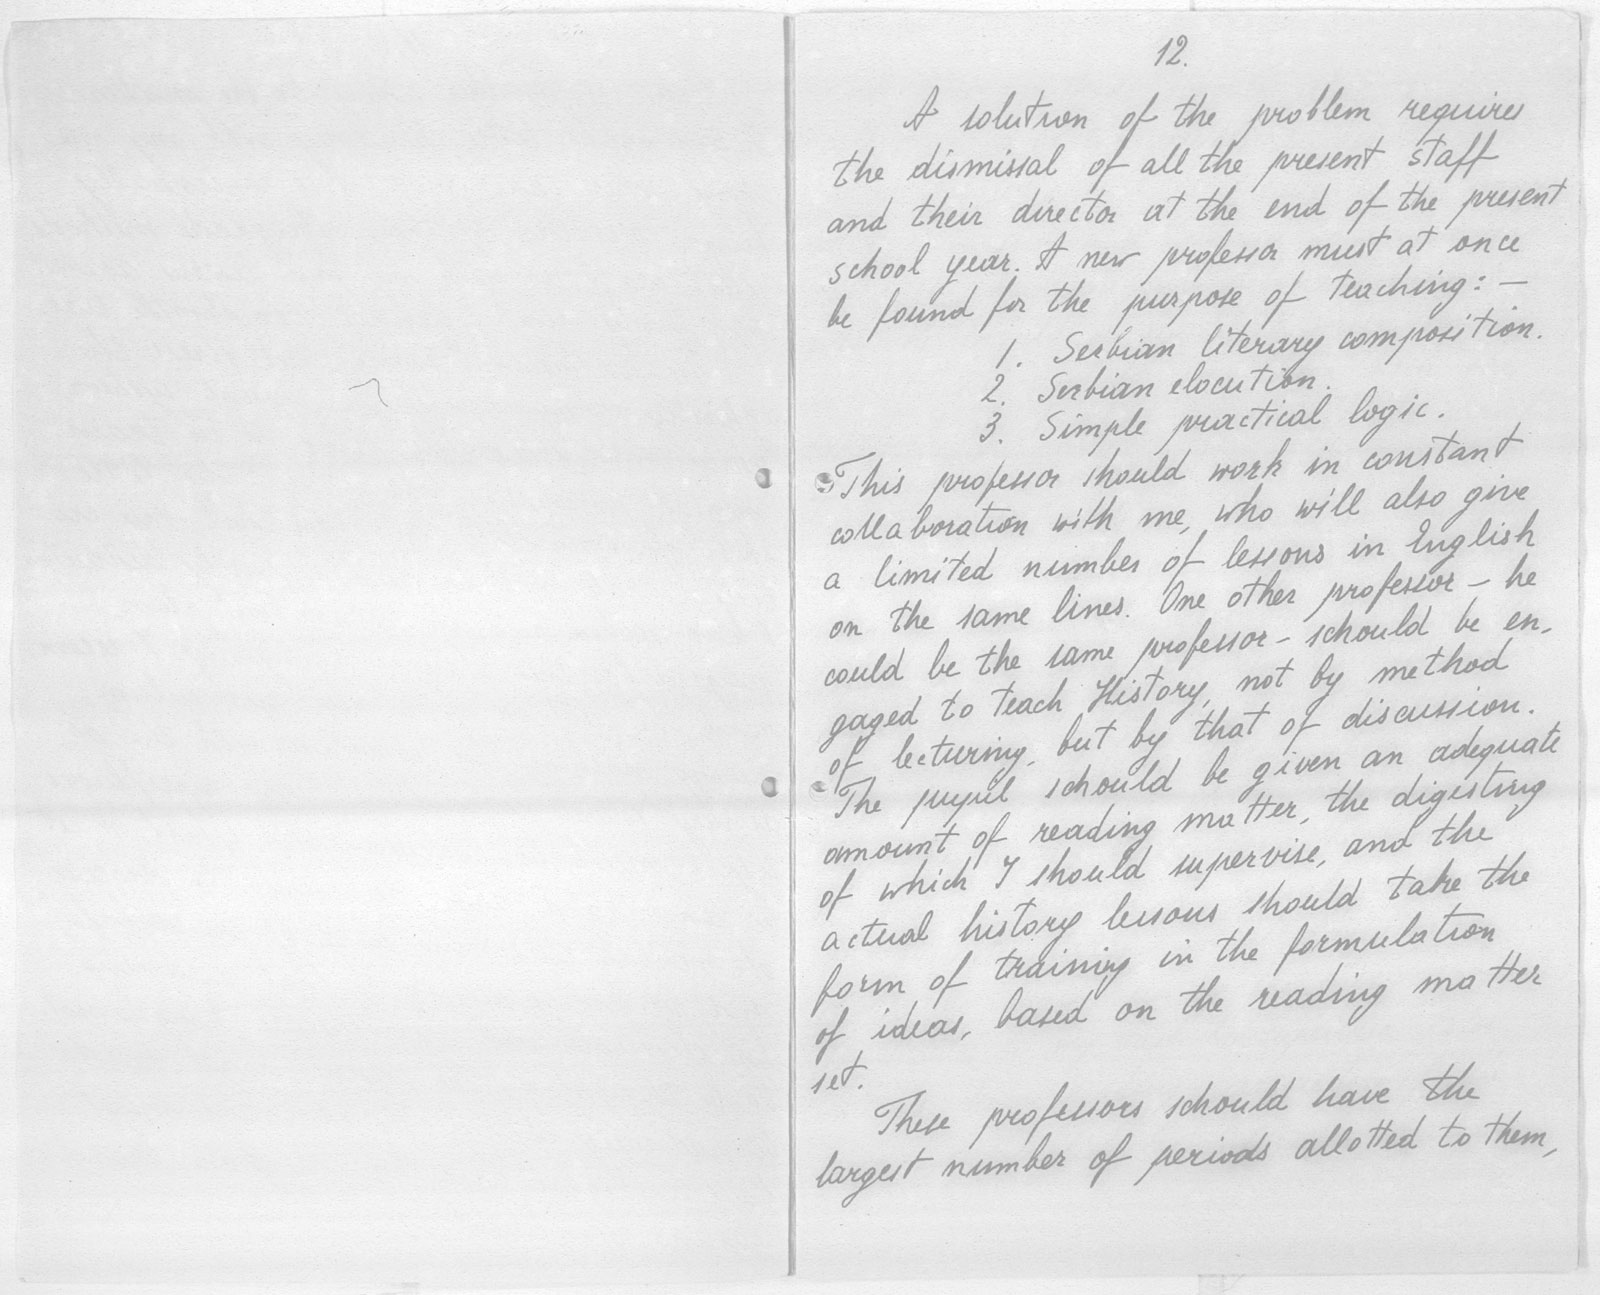 12.
A solution of the problem requires
the dismissal of all the present staff
and their director at the end of the present
school year. A new professor must at once
be found for the purpose of teaching: —
1. Serbian literary composition.
2. Serbian elocution.
3. Simple practical logic.
This professor should work in constant
collaboration with me, who will also give
a limited number of lessons in English
on the same lines. One other professor – he
could be the same professor – schould be en-
gaged to teach History, not by method
of lecturing, but by that of discussion.
The pupil schould be given an adequate
amount of reading matter, the digesting
of which I should supervise, and the
actual history lessons should take the
form of training in the formulation
of ideas, based on the reading matter
set.
These professors schould have the
largest number of periods allotted to them,